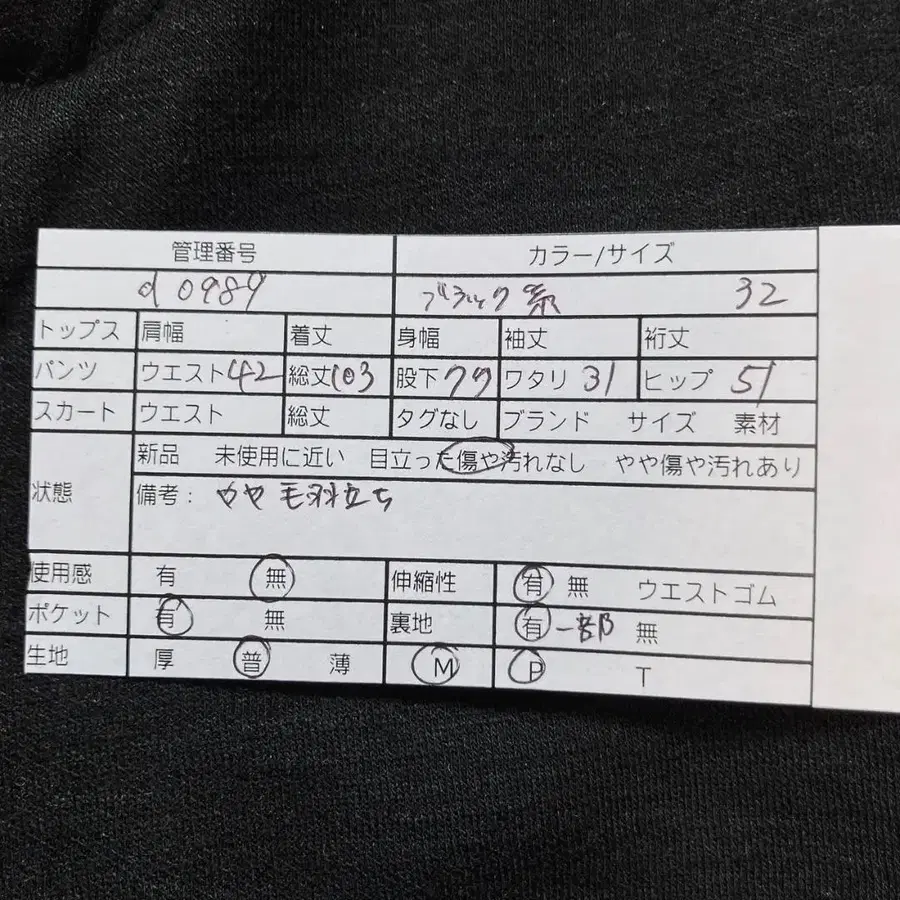 管理番号 カラー/サイズ
d0989 ブラック系 32
トップス 肩幅 着丈 身幅 袖丈 裄丈
パンツ ウエスト42 総丈103 股下77 ワタリ 31 ヒップ 51
スカート ウエスト 総丈 タグなし ブランド サイズ 素材
状態 新品 未使用に近い 目立った傷や汚れなし やや傷や汚れあり
備考: やや毛羽立ち
使用感 有 無 伸縮性 有 無 ウエストゴム
ポケット 有 無 裏地 有 一部 無
生地 厚 普 薄 M P T